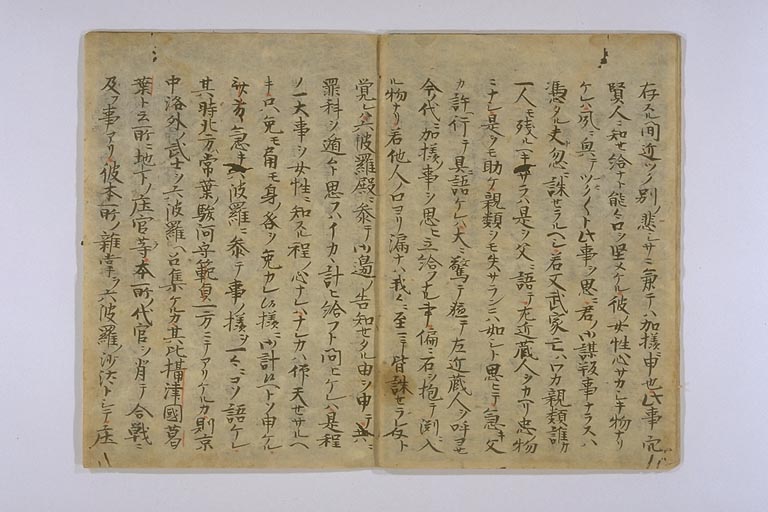 存スル間近ツノ別ノ悲ニサニ兼テハ加様ニ申也此事穴
賢人ニ知セ給ナト能々口ヲ堅メケル彼女性心サカシキ物ナリ
ケレハ夙ニ興テツク〱ト此事ヲ思ニ君ノ御謀叛事ナラスハ
憑タル夫忽ニ誅セラルヘシ若又武家亡ハワカ親類誰カ
一人モ残ルヘキサラハ是ヲ父ニ語テ左近蔵人ヲカリ忠物
ミナシ是ヲモ助ケ親類ヲモ失サランニハ如シト思ヒテ急キ父
カ許行テ具ニ語ケレハ大ニ驚テ軈テ左近蔵人ヲ呼ヨセ
今代ニ加様事ヲ思ヒ立給フナル事偏ニ石ヲ抱テ淵ニ入
ル物ナリ若他人ノ口ヨリ漏ナハ我々ニ至ニテ皆誅セラレ矣ト
覚レハ六波羅殿ニ参テ御辺ノ告知セタル由ヲ申テ共ニ
罪科ヲ遁ムト思フハイカヽ計ヒ給フト問ヒケレハ是程
ノ一大事ヲ女性ニ知スル程ノ心ナレハナシカハ仰天セサルヘ
キ只免モ角モ身ノ咎ヲ免カレム様ニ御計候ヘトソ申ケル
サ有ハ急キ六波羅ニ参テ事ノ様ヲ一々ニコソ語ケレ
其時北方常葉駿河守範貞一方ニテアリケルカ則京
中洛外ノ武士ヲ六波羅ヘ召集ケルカ其比攝津國葛
葉ト云所ニ地下ノ庄官等本所ノ代官ヲ背テ合戦ニ
及フ事アリ彼本所ノ雑掌ヲ六波羅ノ沙汰トシテ庄